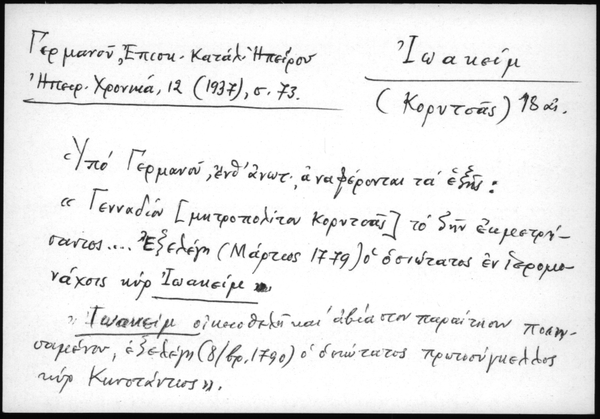 Γερμανοῦ, Ἐπισκ. Κατάλ. Ἠπείρου
Ἠπειρ. Χρονικά, 12 (1937), σ. 73.
Ἰωακείμ
(Κορυτσᾶς) 18 αἰ.
Ὑπό Γερμανοῦ, ἔνθ' ἀνωτ., ἀναφέρονται τά ἑξῆς:
« Γενναδίου [μητροπολίτου Κορυτσᾶς] τό ζῆν ἐκμετρή-
σαντος.... Ἐξελέγη (Μάρτιος 1779) ὁ ὁσιώτατος ἐν ἱερομο-
νάχοις κύρ Ἰωακείμ».
« Ἰωακείμ οἰκειοθελῆ καί ἀβίαστον παραίτησιν ποιη-
σαμένου, ἐξελέγη (8/βρ. 1790) ὁ ὁσιώτατος πρωτοσύγκελλος
κύρ Κωνστάντιος».